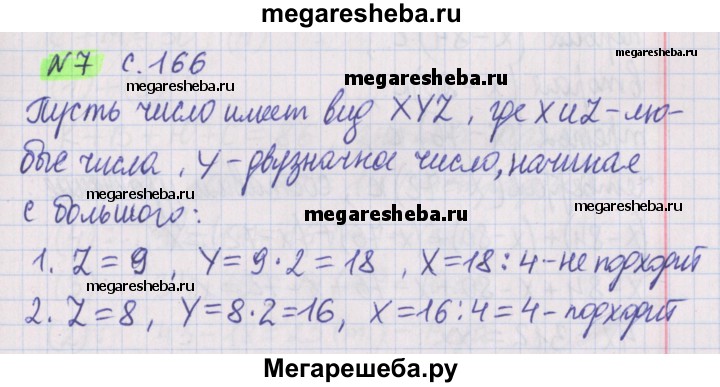 megaresheba.ru
№7 с.166
megaresheba.ru
megaresheba.ru
Пусть число имеет вид XYZ, где X и Z-лю-
бые числа, Y-двузначное число, начиная
megaresheba.ru
с большого:
megaresheba.ru
megaresheba.ru
1. Z = 9, Y=9·2=18, X=18:4-не подходит
2. Z=8, Y=8·2=16, X=16:4=4-подходит
Мегарешеба.ру